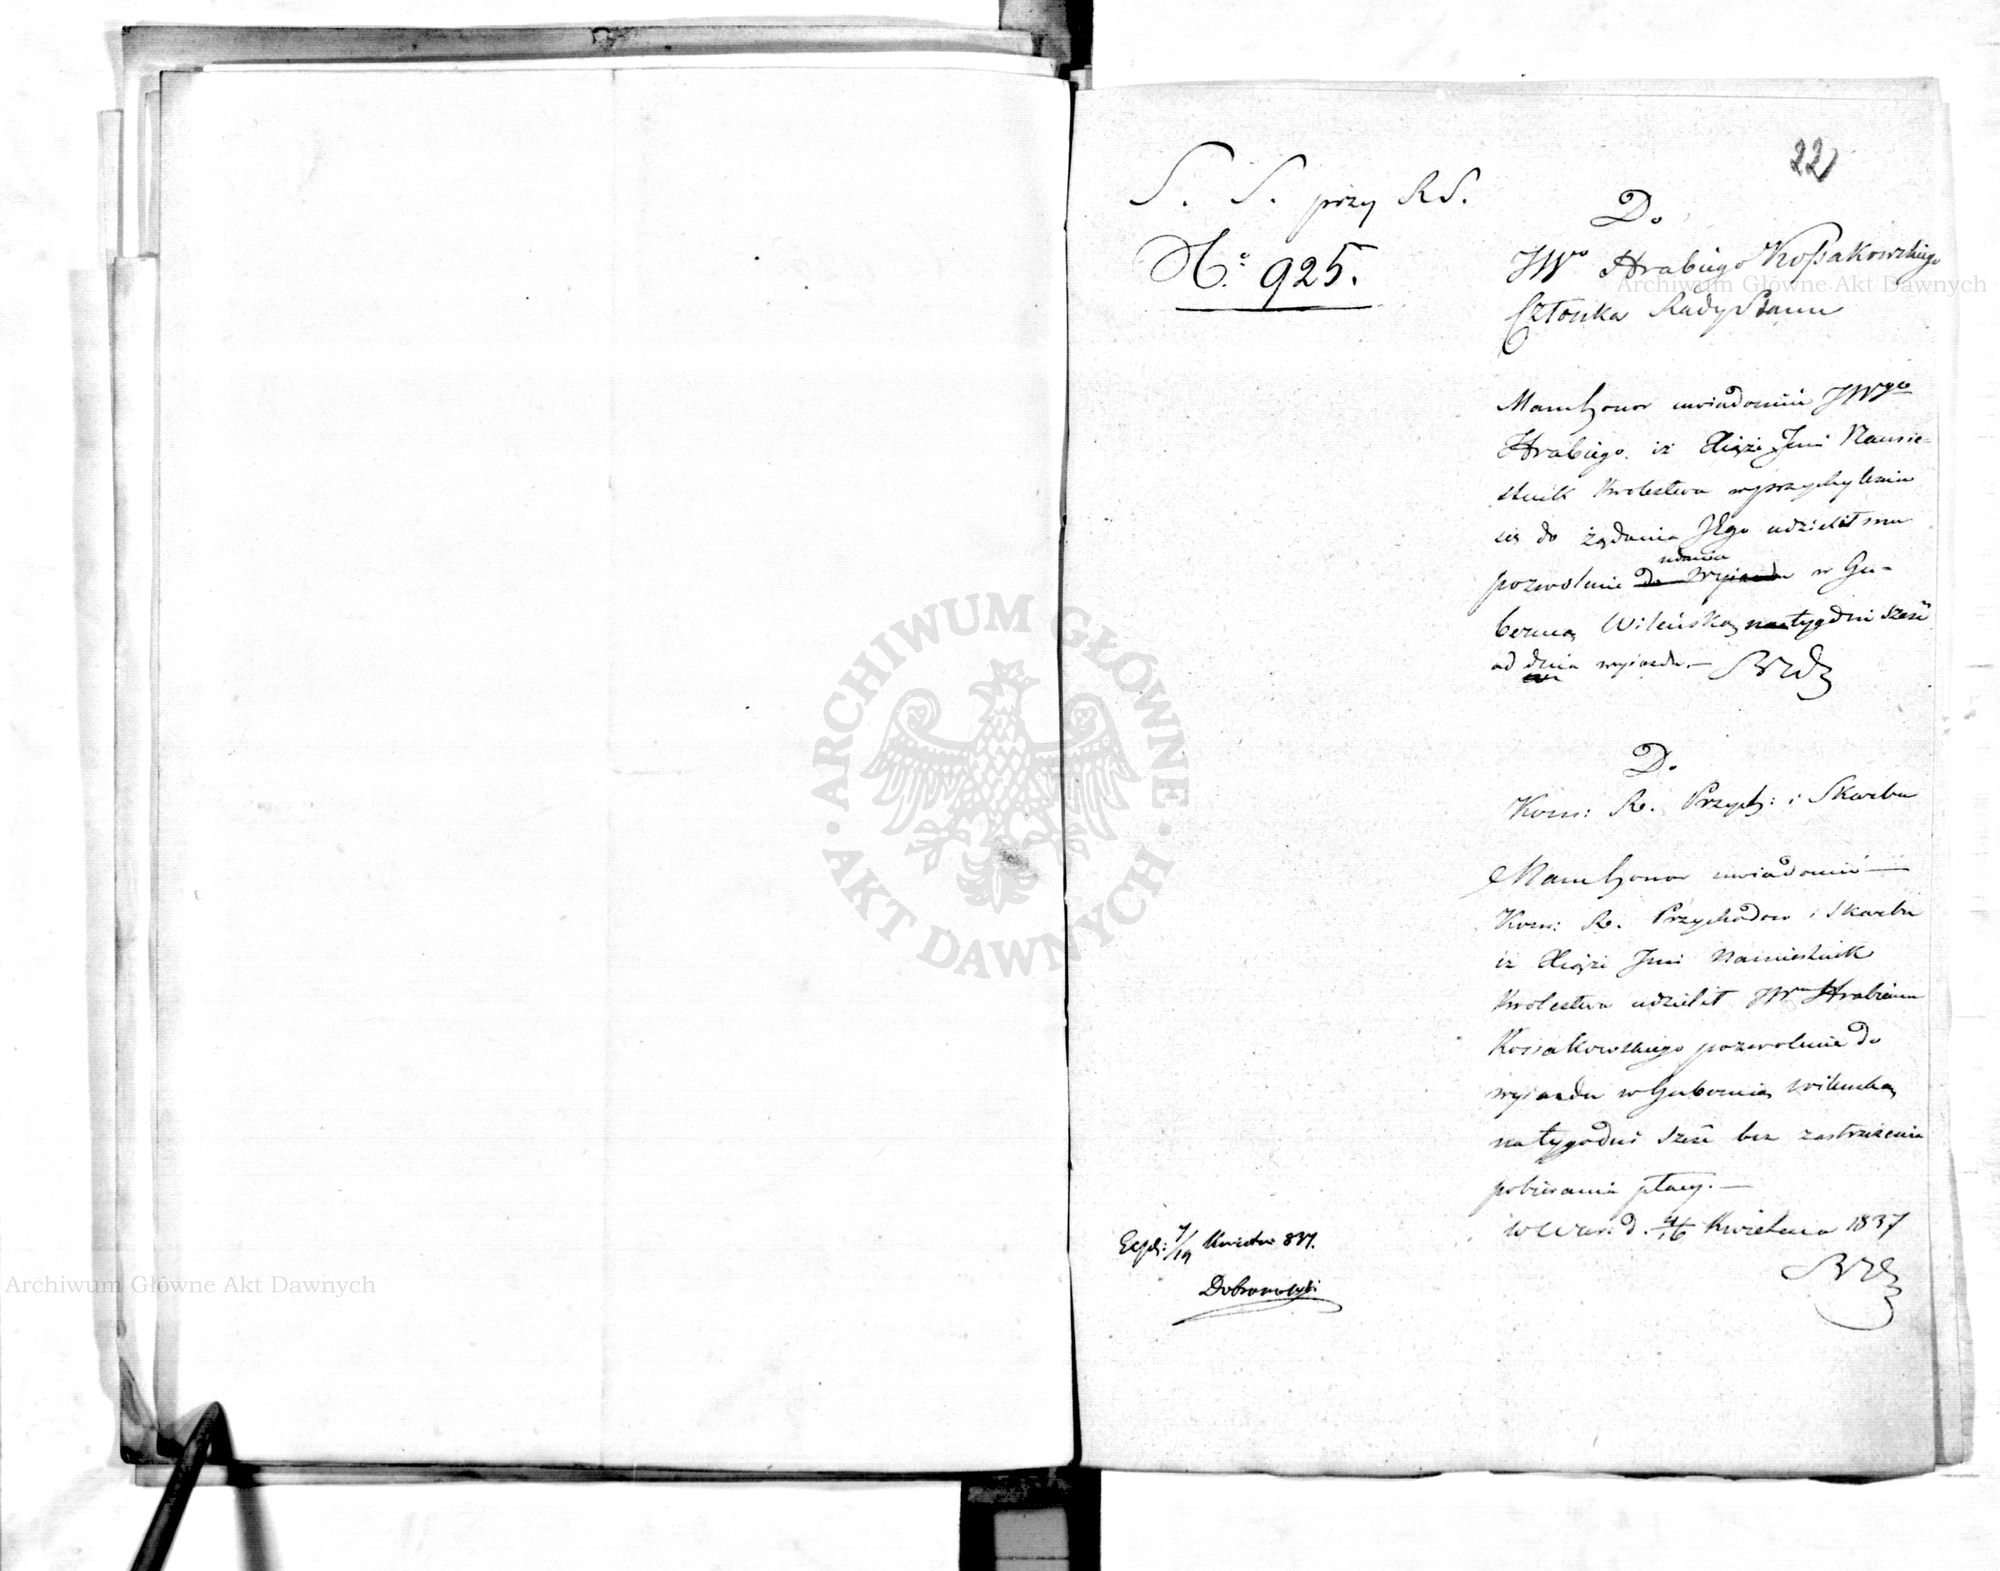 22
S. S. przy RS.
No. 925.
D.
JWo Hrabiego Koſsakowskiego
Członka Rady Stanu
Mam honor uwiadomić JWgo
Hrabiego iż Xiąże Jmć Namie-
stnik Krolestwa w przychyleniu
się do żądania JEgo udzielił mu
udania
pozwolenie do wyiazdu w Gu-
bernią Wileńską na tygodni sześć
od dnia wyiazdu.—
D.
Kom: R. Przych: i Skarbu
Mam honor uwiadomić —
Kom: R. Przychodow i Skarbu
iż Xiąże Jmć Namiestnik
Krolestwa udzielił JWmu Hrabiemu
Kossakowskiego pozwolenie do
wyiazdu w Gubernią Wileńską
na tygodni sześć bez zastrzeżenia
pobierania płacy.—
w War: d. 4/16 Kwietnia 1837
Exped: 7/19 Kwietnia 837.
ARCHIWUM GŁÓWNE
AKT DAWNYCH
Archiwum Główne Akt Dawnych
Archiwum Główne Akt Dawnych